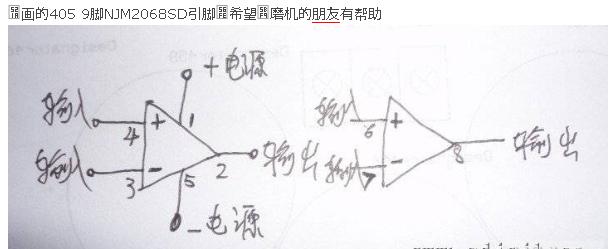 画的405 9脚NJM2068SD引脚 希望 磨机的朋友有帮助
+电源
输入
4
+
1
输入
3
-
5
2
输出
-电源
输入
6
+
输入
7
-
8
输出